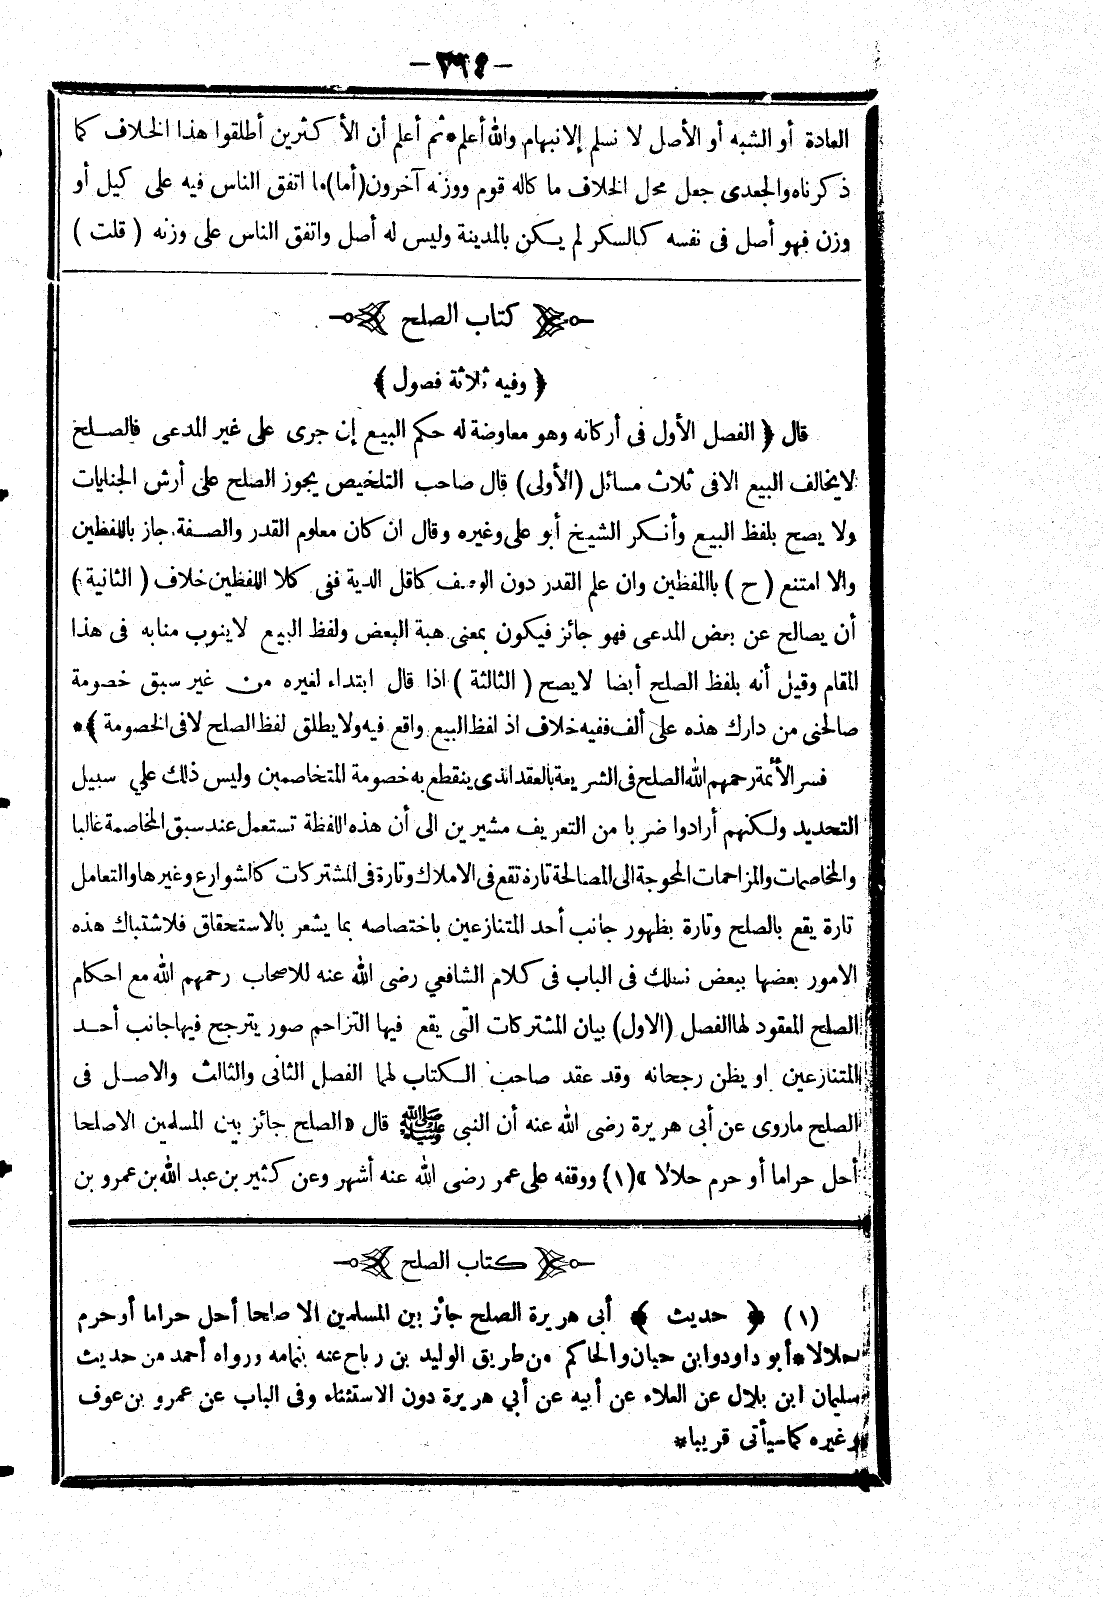 -٢٩٤-
العادة أو الشبه أو الأصل لا نسلم إلانبهام والله أعلم*ثم أعلم أن الأكثرين أطلقوا هذا الخلاف كما
ذكرناه والجعدى جعل محل الخلاف ما كاله قوم ووزنه آخرون(أما)ما اتفق الناس فيه على كيل أو
وزن فهو أصل فى نفسه كالسكر لم يكن بالمدينة وليس له أصل واتفق الناس على وزنه ( قلت )
كتاب الصلح
﴿ وفيه ثلاثة فصول ﴾
قال ﴿ الفصل الأول فى أركانه وهو معاوضة له حكم البيع إن جرى على غير المدعى فالصلح
لايخالف البيع الافى ثلاث مسائل (الأولى) قال صاحب التلخيص يجوز الصلح على أرش الجنايات
ولا يصح بلفظ البيع وأنكر الشيخ أبو على وغيره وقال ان كان معلوم القدر والصفة جاز باللفظين
والا امتنع ( ح ) باللفظين وان علم القدر دون الوصف كاقل الدية ففى كلا اللفظين خلاف ( الثانية )
أن يصالح عن بعض المدعى فهو جائز فيكون بمعنى هبة البعض ولفظ البيع لاينوب منابه فى هذا
المقام وقيل أنه بلفظ الصلح أيضا لايصح ( الثالثة ) اذا قال ابتداء لغيره من غير سبق خصومة
صالحنى من دارك هذه على ألف ففيه خلاف اذ لفظ البيع واقع فيه ولا يطلق لفظ الصلح لافى الخصومة ﴾*
فسر الأئمة رحمهم الله الصلح فى الشريعة بالعقد الذى ينقطع به خصومة المتخاصمين وليس ذلك علي سبيل
التحديد ولكنهم أرادوا ضربا من التعريف مشيرين الى أن هذه اللفظة تستعمل عند سبق المخاصمة غالبا
والمخاصمات والمزاحمات المحوجة الى المصالحة تارة تقع فى الاملاك وتارة فى المشتركات كالشوارع وغيرها والتعامل
تارة يقع بالصلح وتارة بظهور جانب أحد المتنازعين باختصاصه بما يشعر بالاستحقاق فلاشتباك هذه
الامور بعضها ببعض نسلك فى الباب فى كلام الشافعي رضى الله عنه للاصحاب رحمهم الله مع احكام
الصلح المعقود لها الفصل (الاول) بيان المشتركات التى يقع فيها التزاحم صور يترجح فيها جانب أحد
المتنازعين او يظن رجحانه وقد عقد صاحب الكتاب لهما الفصل الثانى والثالث والاصل فى
الصلح ماروى عن أبى هريرة رضى الله عنه أن النبى ﷺ قال «الصلح جائز بين المسلمين الاصلحا
أحل حراما أو حرم حلالا »(١) ووقفه على عمر رضى الله عنه أشهر وعن كثير بن عبد الله بن عمرو بن
كتاب الصلح
(١) ﴿ حديث ﴾ أبى هريرة الصلح جائز بين المسلمين الا صلحا أحل حراما أو حرم
حلالا*أبو داود وابن حبان والحاكم من طريق الوليد بن رباح عنه بتمامه ورواه أحمد من حديث
سليمان ابن بلال عن العلاء عن أبيه عن أبي هريرة دون الاستثناء وفى الباب عن عمرو بن عوف
وغيره كما سيأتى قريبا*